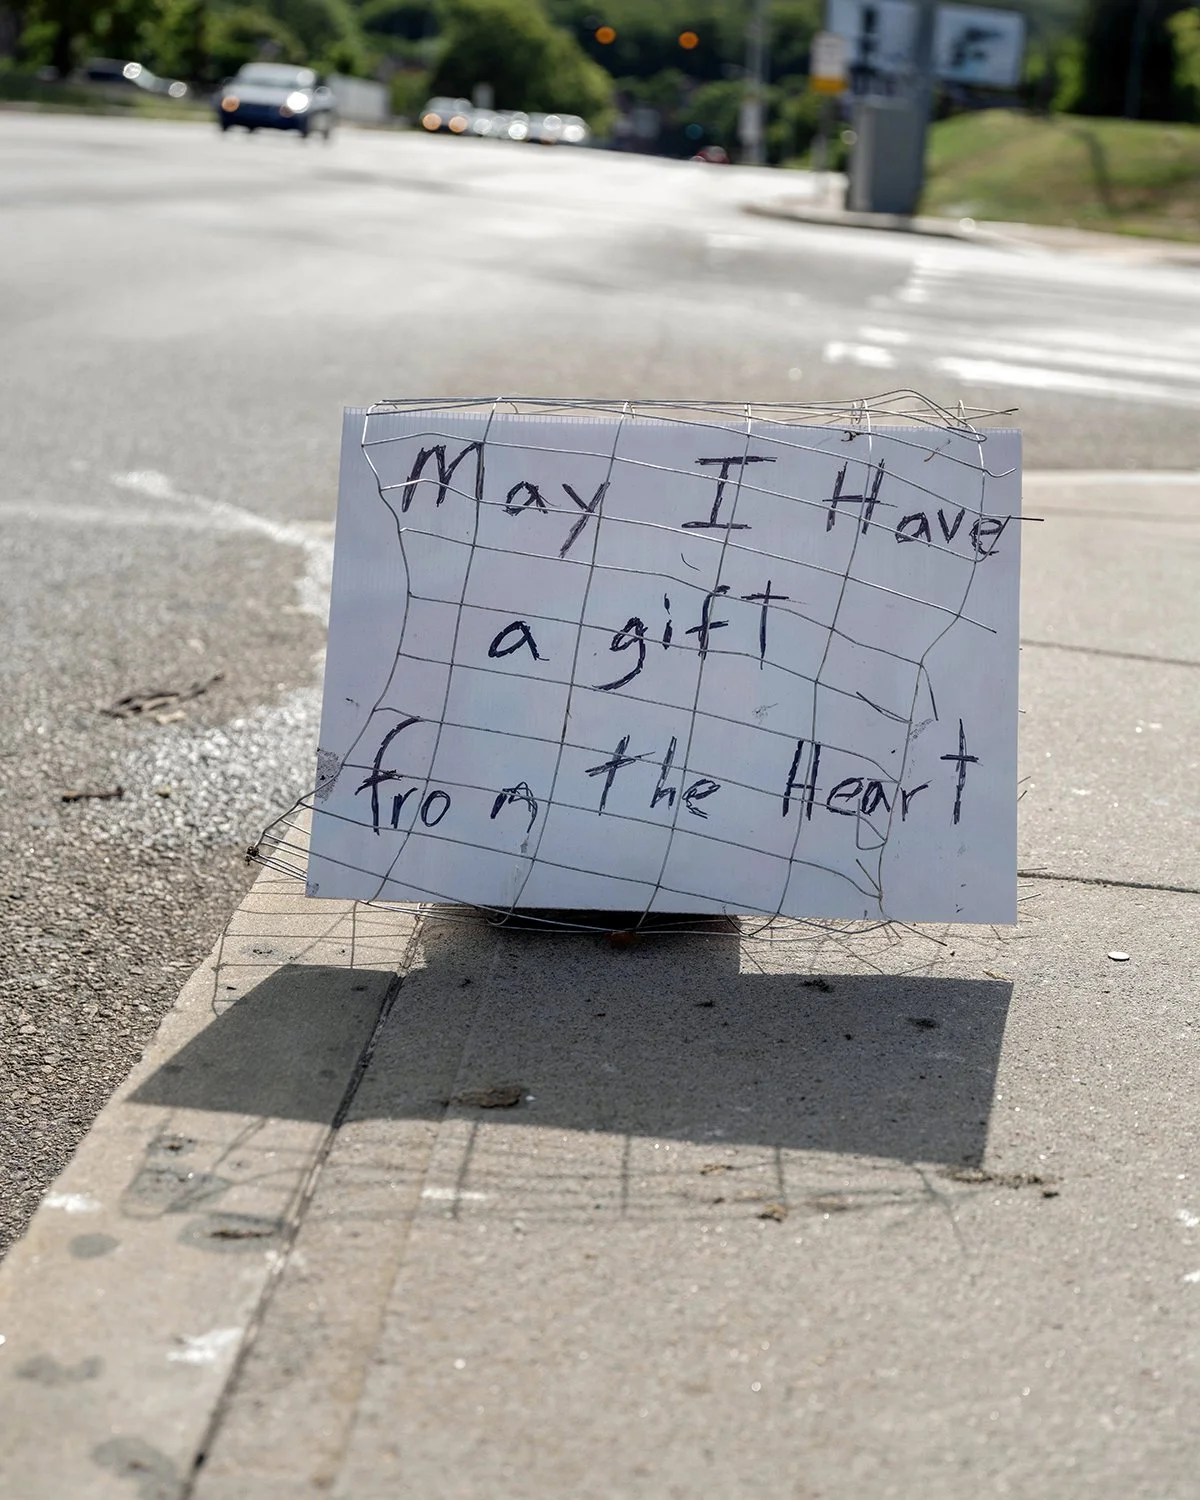 May I Have
a gift
from the Heart